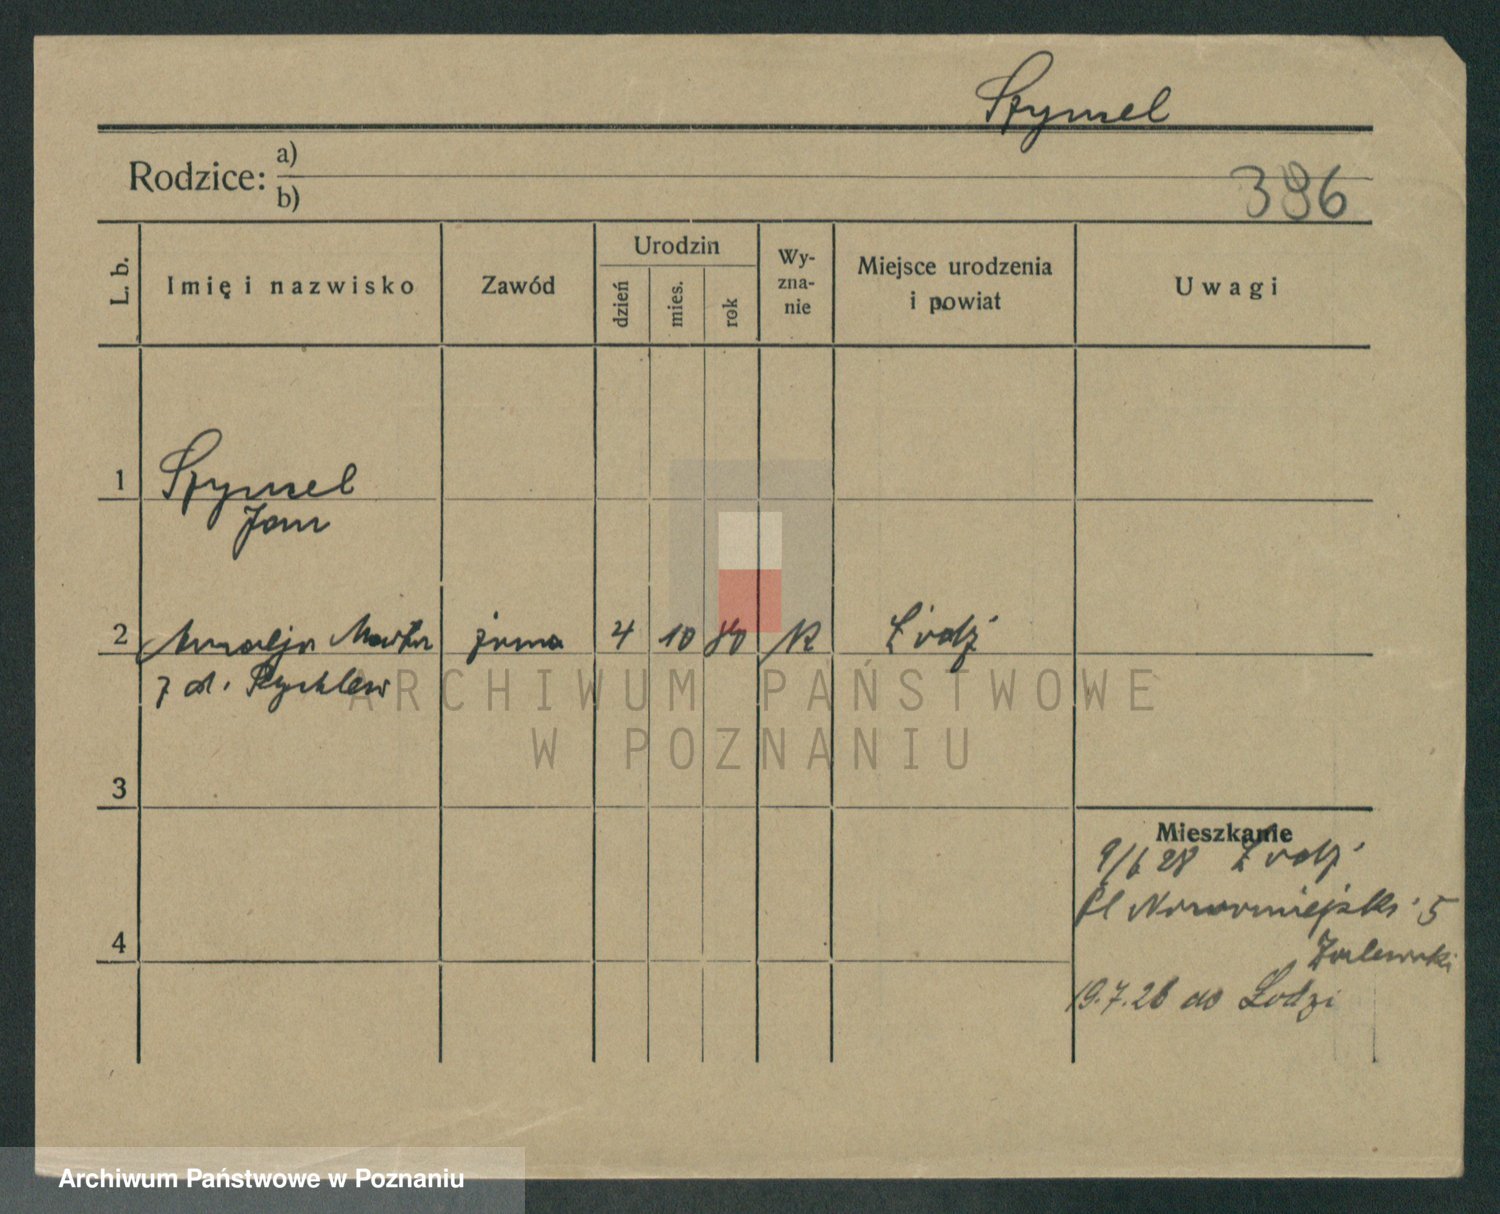 Szymel
Rodzice: a)
b)
396
L. b.
Imię i nazwisko
Zawód
Urodzin
dzień
mies.
rok
Wy-
zna-
nie
Miejsce urodzenia
i powiat
Uwagi
1
Szymel
Jan
2
Amalja Marta
z d. Rychlew
żona
4
10
80
K
Łódź
ARCHIWUM PAŃSTWOWE
W POZNANIU
3
Mieszkanie
9/6 28 Łódź
Pl Nowomiejski 5
Zalewski
4
19.7.28 do Łodzi
Archiwum Państwowe w Poznaniu